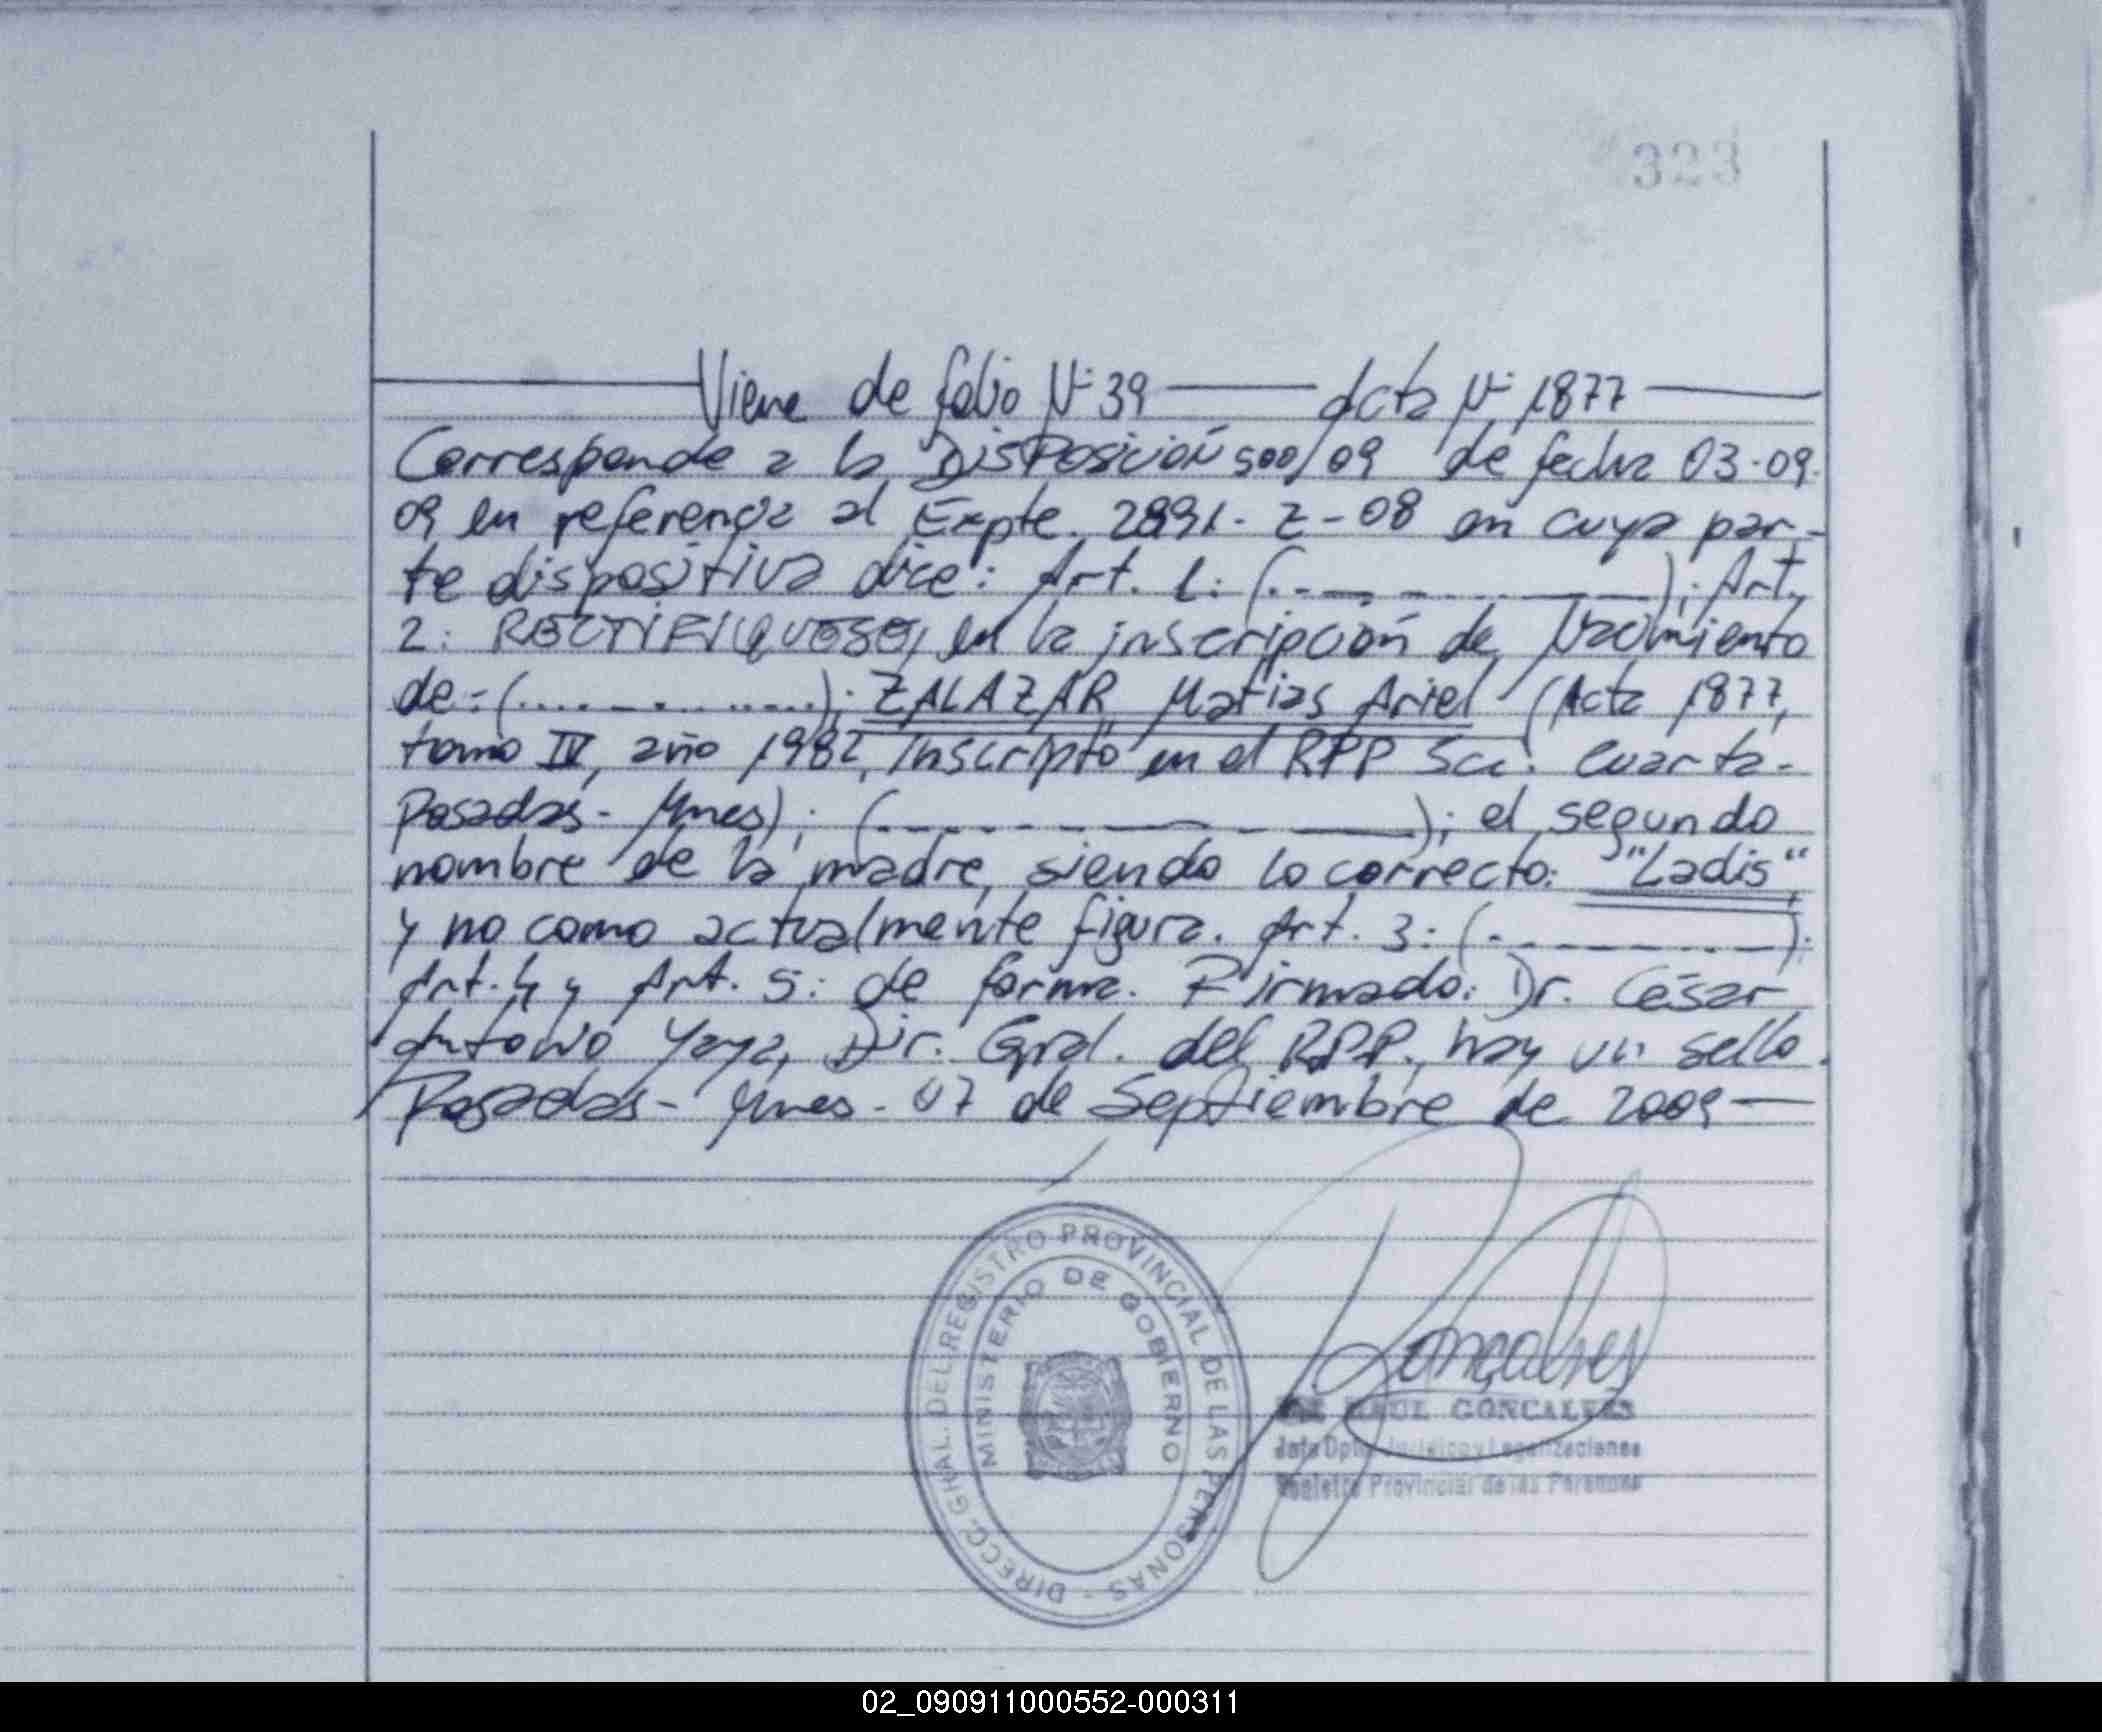 323
Viene de folio Nº 39 — Acta Nº 1877 —
Corresponde a la DISPOSICIÓN 500/09 de fecha 03.09.
09 en referencia al Expte. 2891-Z-08 en cuya par-
te dispositiva dice: Art. 1: (.-----------); Art.
2: RECTIFIQUESE, en la inscripción de Nacimiento
de: (..............); ZALAZAR Matias Ariel (Acta 1877,
tomo IV, año 1982, inscripto en el RPP Scc. Cuarta-
Posadas- Mnes); (-----------); el segundo
nombre de la madre, siendo lo correcto: "Ladis"
y no como actualmente figura. Art. 3: (.---------).
Art. 4 y Art. 5: de forma. Firmado: Dr. César
Antonio Yaya, Dir. Gral. del RPP., hay un sello.
Posadas- Mnes- 07 de Septiembre de 2009 —
DIRECC. GRAL. DEL REGISTRO PROVINCIAL DE LAS PERSONAS -
MINISTERIO DE GOBIERNO
Gonçalves
RAUL GONCALVES
Jefe Dpto. Jurídico y Legalizaciones
Registro Provincial de las Personas
02_090911000552-000311